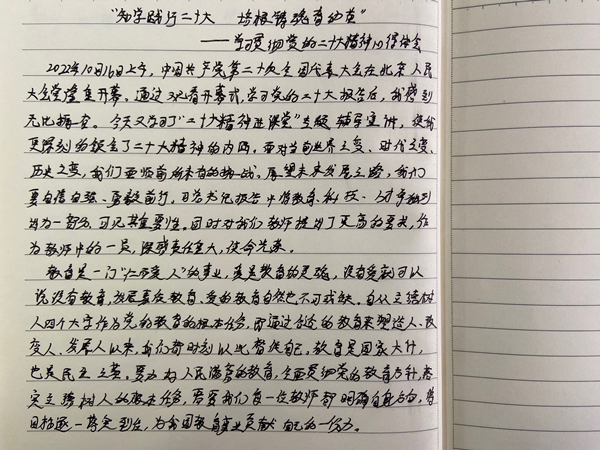 "知学践行二十大 培根铸魂育幼苗"
——学习贯彻党的二十大精神心得体会
2022年10月16日上午，中国共产党第二十次全国代表大会在北京人民
大会堂隆重开幕。通过观看开幕式，学习党的二十大报告后，我感到
无比振奋。今天又学习了"二十大精神进课堂"主题辅导宣讲，使我
更深刻的领会了二十大精神的内涵。面对当前世界之变、时代之变、
历史之变，我们正临前所未有的挑战。展望未来发展之路，我们
要自信自强、勇毅前行。习总书记报告中将教育、科技、人才单独列
出为一部分，可见其重要性。同时对我们教师提出了更高的要求，作
为教师中的一员，深感责任重大，使命光荣。
教育是一门"仁而爱人"的事业，爱是教育的灵魂，没有爱就可以
说没有教育，发展素质教育，爱的教育自然也不可或缺。自从立德树
人四个大字作为党的教育的根本任务，即通过合适的教育来塑造人、改
变人、发展人以来，我们都时刻以此督促自己。教育是国家大计，
也是民生之基。要办好人民满意的教育，全面贯彻党的教育方针，落
实立德树人的根本任务，需要我们每一位教师都明确自身方向，将
目标逐一落实到位，为我国教育事业贡献自己的一份力。